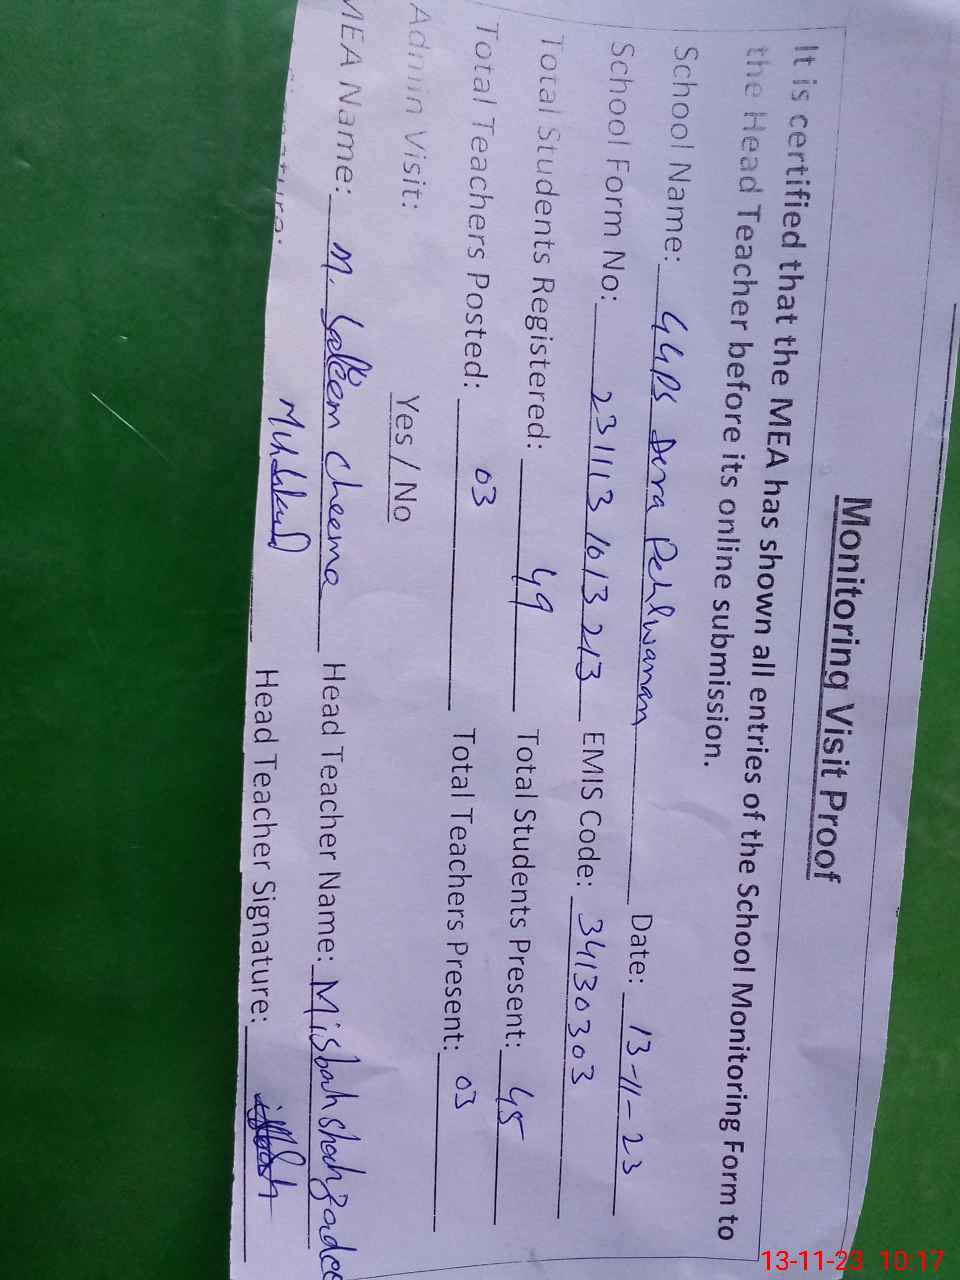 Monitoring Visit Proof
It is certified that the MEA has shown all entries of the School Monitoring Form to
the Head Teacher before its online submission.
School Name: GGPS Dera Pehlwanan Date: 13-11-23
School Form No: 231113 1013 213 EMIS Code: 34130303
Total Students Registered: 49 Total Students Present: 45
Total Teachers Posted: 03 Total Teachers Present: 03
Admin Visit: Yes / No
MEA Name: M. Saleem Cheema Head Teacher Name: Misbah shahzadee
Head Teacher Signature:
13-11-23 10:17